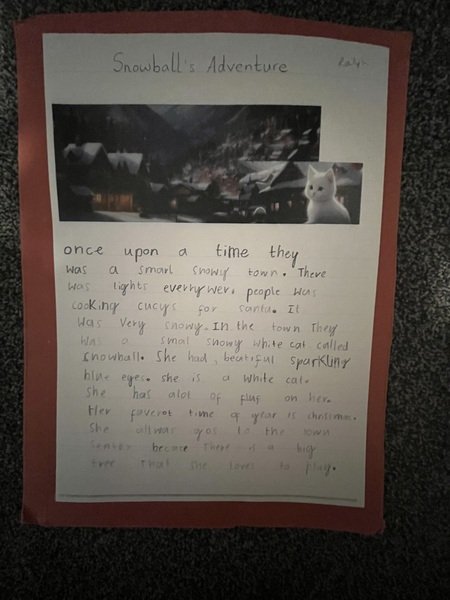 Snowball's Adventure
Ralph
once upon a time they
was a smarl snowy town. There
was lights everrywer. people was
cooking cucys for santa. It
was very snowy. In the town They
was a smal snowy white cat called
snowball. She had, beatiful sparkling
blue eyes. she is a white cat.
She has alot of fluf on her.
Her faverot time of year is christmas.
She allwas gos to the town
senter becase There is a big
tree that she loves to play.